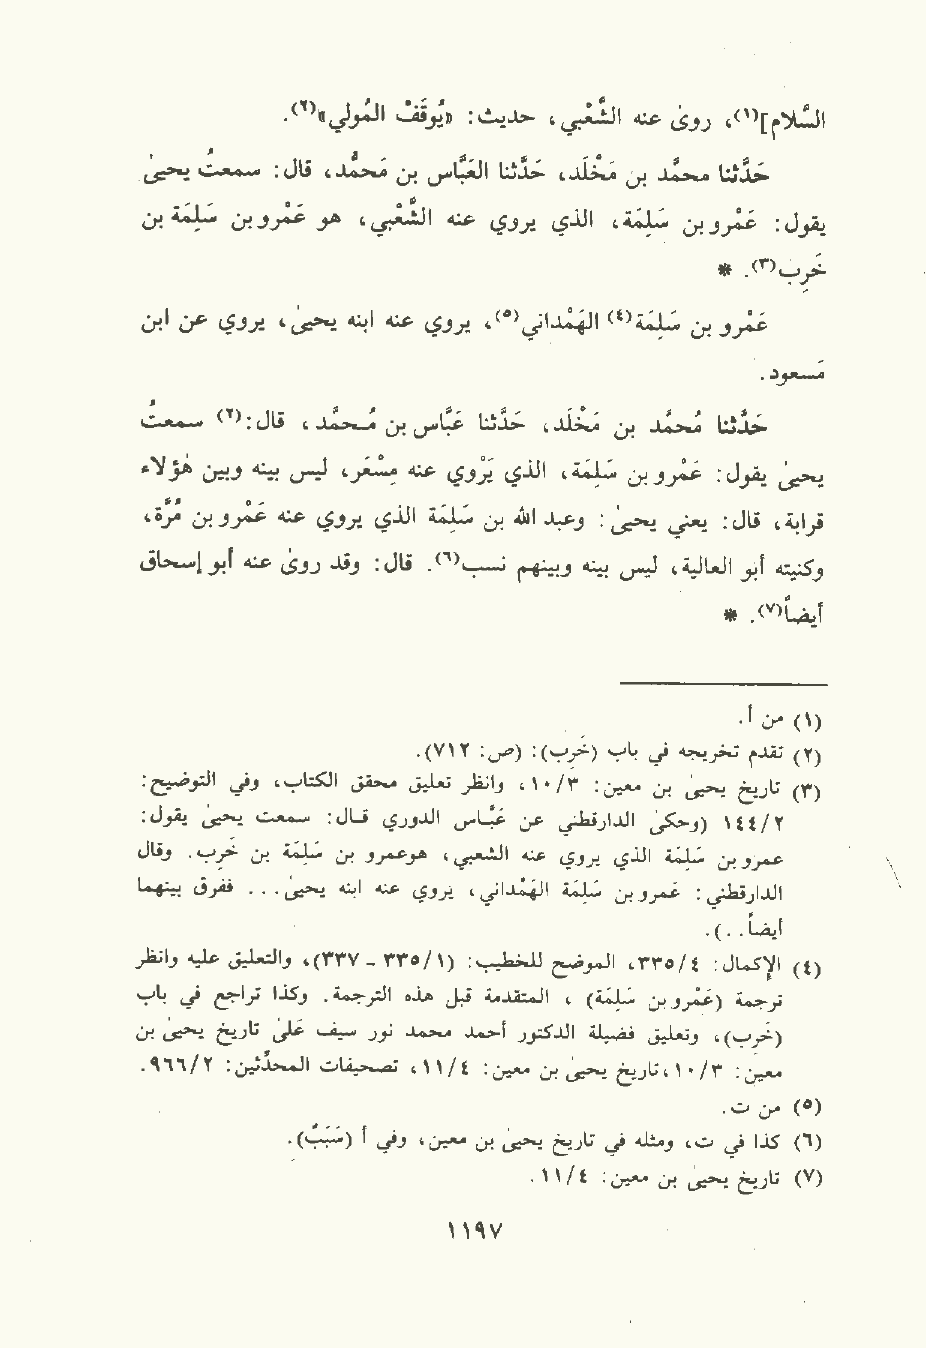 السَّلام](١)، روىٰ عنه الشَّعْبي، حديث: «يُوقَفْ المُولي»(٢).
حَدَّثنا محمَّد بن مَخْلَد، حَدَّثنا العَبَّاس بن مَحمَّد، قال: سمعتُ يحيىٰ
يقول: عَمْرو بن سَلِمَة، الذي يروي عنه الشَّعْبي، هو عَمْرو بن سَلِمَة بن
خَرِب(٣). *
عَمْرو بن سَلِمَة(٤) الهَمْداني(٥)، يروي عنه ابنه يحيىٰ، يروي عن ابن
مَسعود.
حَدَّثنا مُحمَّد بن مَخْلَد، حَدَّثنا عَبَّاس بن مُحمَّد، قال:(٢) سمعتُ
يحيىٰ يقول: عَمْرو بن سَلِمَة، الذي يَروي عنه مِسْعَر، ليس بينه وبين هٰؤلاء
قرابة، قال: يعني يحيىٰ: وعبد الله بن سَلِمَة الذي يروي عنه عَمْرو بن مُرَّة،
وكنيته أبو العالية، ليس بينه وبينهم نسب(٦). قال: وقد روىٰ عنه أبو إسحاق
أيضاً(٧). *
(١) من أ.
(٢) تقدم تخريجه في باب (خَرِب): (ص: ٧١٢).
(٣) تاريخ يحيىٰ بن معين: ١٠/٣، وانظر تعليق محقق الكتاب، وفي التوضيح:
١٤٤/٢ (وحكىٰ الدارقطني عن عَبَّاس الدوري قال: سمعت يحيىٰ يقول:
عمرو بن سَلِمَة الذي يروي عنه الشعبي، وهوعمرو بن سَلِمَة بن خَرب. وقال
الدارقطني: عَمرو بن سَلِمَة الهَمْداني، يروي عنه ابنه يحيىٰ... ففرق بينهما
أيضاً..).
(٤) الإكمال: ٣٣٥/٤، الموضح للخطيب: (٣٣٥/١ - ٣٣٧)، والتعليق عليه وانظر
ترجمة (عَمْرو بن سَلِمَة) ، المتقدمة قبل هذه الترجمة. وكذا تراجع في باب
(خَرِب)، وتعليق فضيلة الدكتور أحمد محمد نور سيف علىٰ تاريخ يحيىٰ بن
معين: ١٠/٣،تاريخ يحيىٰ بن معين: ١١/٤، تصحيفات المحدِّثين: ٩٦٦/٢.
(٥) من ت.
(٦) كذا في ت، ومثله في تاريخ يحيىٰ بن معين، وفي أ (سَبَبٌ).
(٧) تاريخ يحيىٰ بن معين: ١١/٤.
١١٩٧